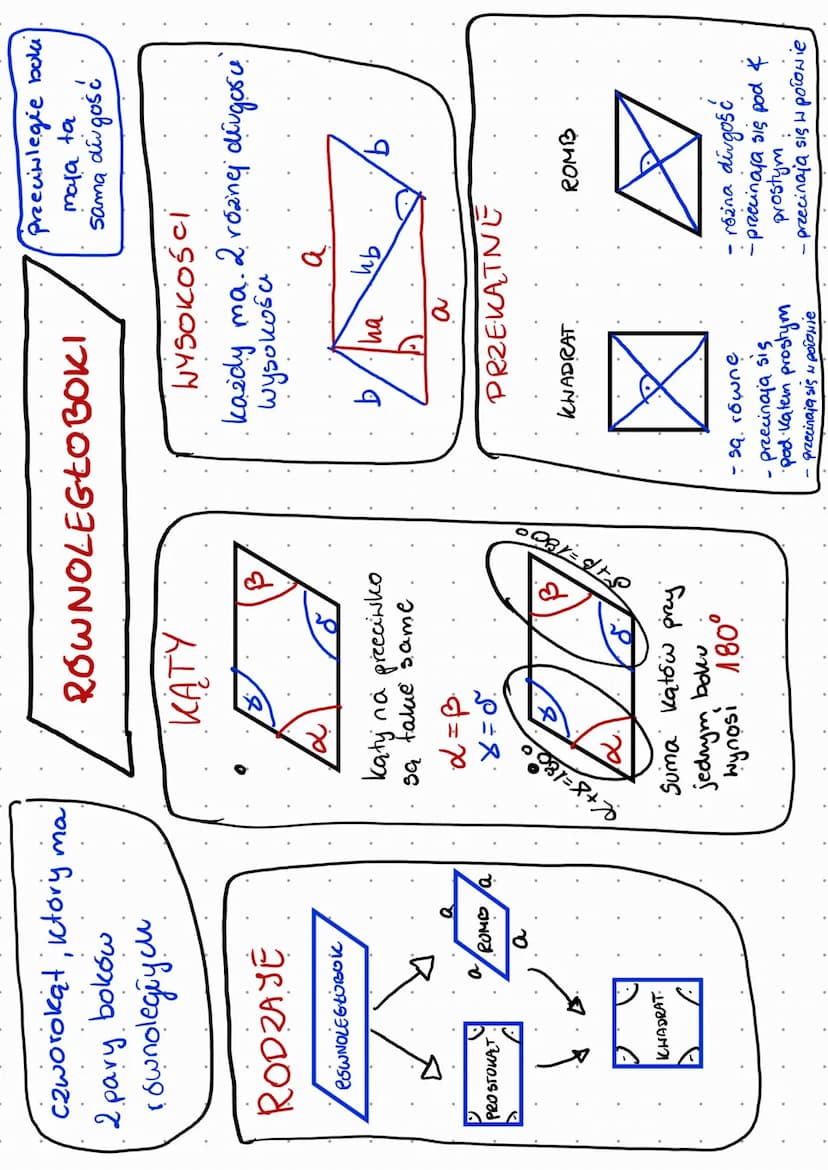 czworokąt, który ma
2 pary boków
równoległych
RÓWNOLEGŁOBOKI
przeciwległe boki
mają tą
samą długość
RODZAJE
RÓWNOLEGŁOBOK
PROSTOKĄT
a
a ROMB a
a
KWADRAT
KĄTY
γ
β
α
δ
kąty na przeciwko
są takie same
α = β
γ = δ
α+γ=180°
δ+β=180°
γ
β
α
δ
suma kątów przy
jednym boku
wynosi 180°
WYSOKOŚCI
każdy ma 2 różnej długości
wysokości
a
b
ha
hb
b
a
PRZEKĄTNE
KWADRAT
- są równe
- przecinają się
pod kątem prostym
- przecinają się w połowie
ROMB
- różna długość
- przecinają się pod ∢
prostym
- przecinają się w połowie